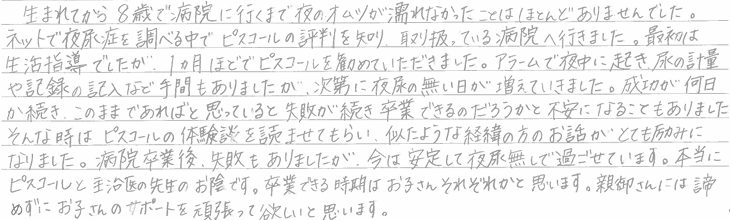 生まれてから8歳で病院に行くまで夜のオムツが濡れなかったことはほとんどありませんでした。
ネットで夜尿症を調べる中でピスコールの評判を知り、取り扱っている病院へ行きました。最初は
生活指導でしたが、1ヵ月ほどでピスコールを勧めていただきました。アラームで夜中に起き、尿の計量
や記録の記入など手間もありましたが、次第に夜尿の無い日が増えていきました。成功が何日
か続き、このままであればと思っていると失敗が続き卒業できるのだろうかと不安になることもありました
そんな時はピスコールの体験談を読ませてもらい、似たような経緯の方のお話がとても励みに
なりました。病院卒業後、失敗もありましたが、今は安定して夜尿無しで過ごせています。本当に
ピスコールと主治医の先生のお陰です。卒業できる時期はお子さんそれぞれかと思います。親御さんには諦
めずにお子さんのサポートを頑張って欲しいと思います。